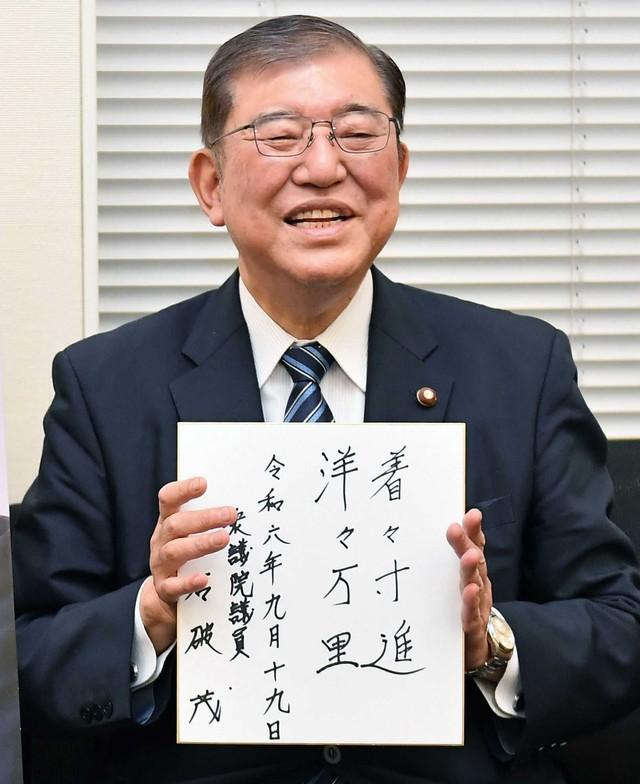 着々寸進
洋々万里
令和六年九月十九日
衆議院議員
石破茂